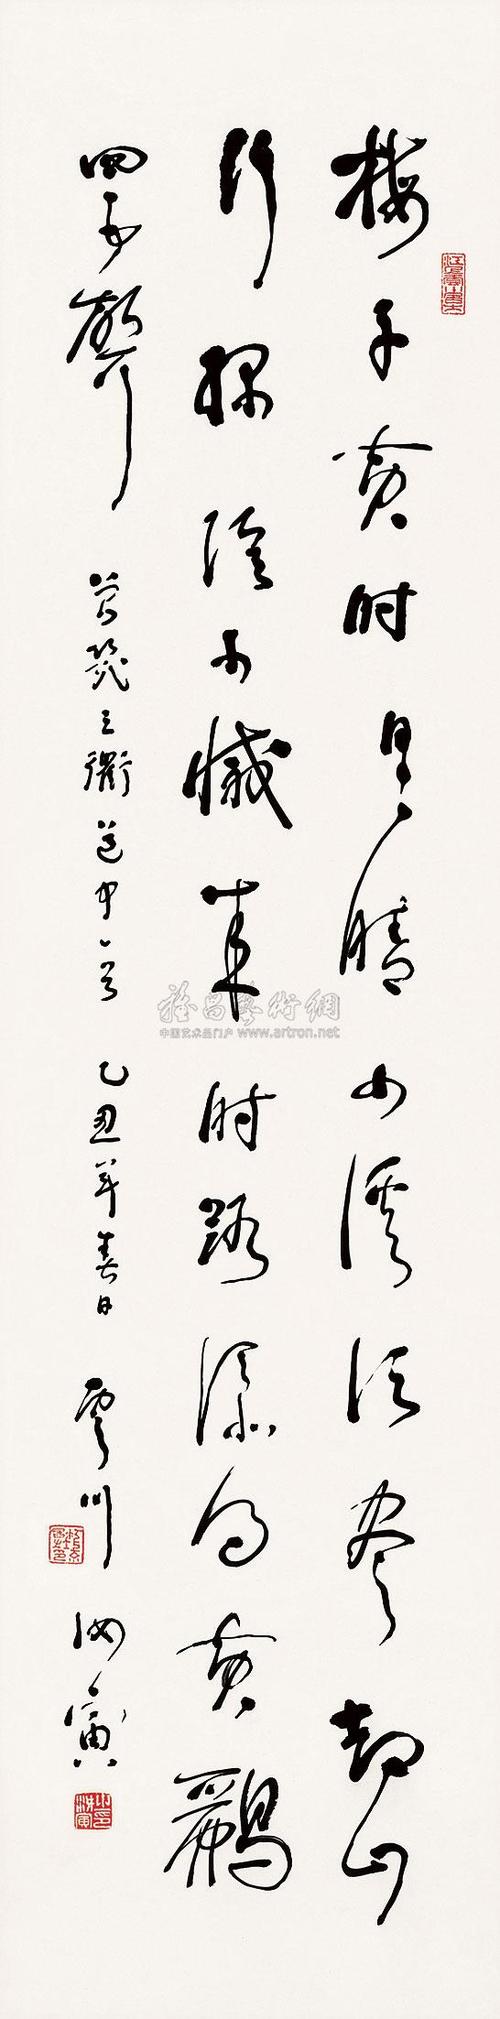 梅子黄时日日晴小溪泛尽却山
行绿陰不減来时路添得黄鸝
四五聲 曾幾三衢道中一首 乙丑年春日
雅昌藝術網
中国艺术品门户 www.artron.net